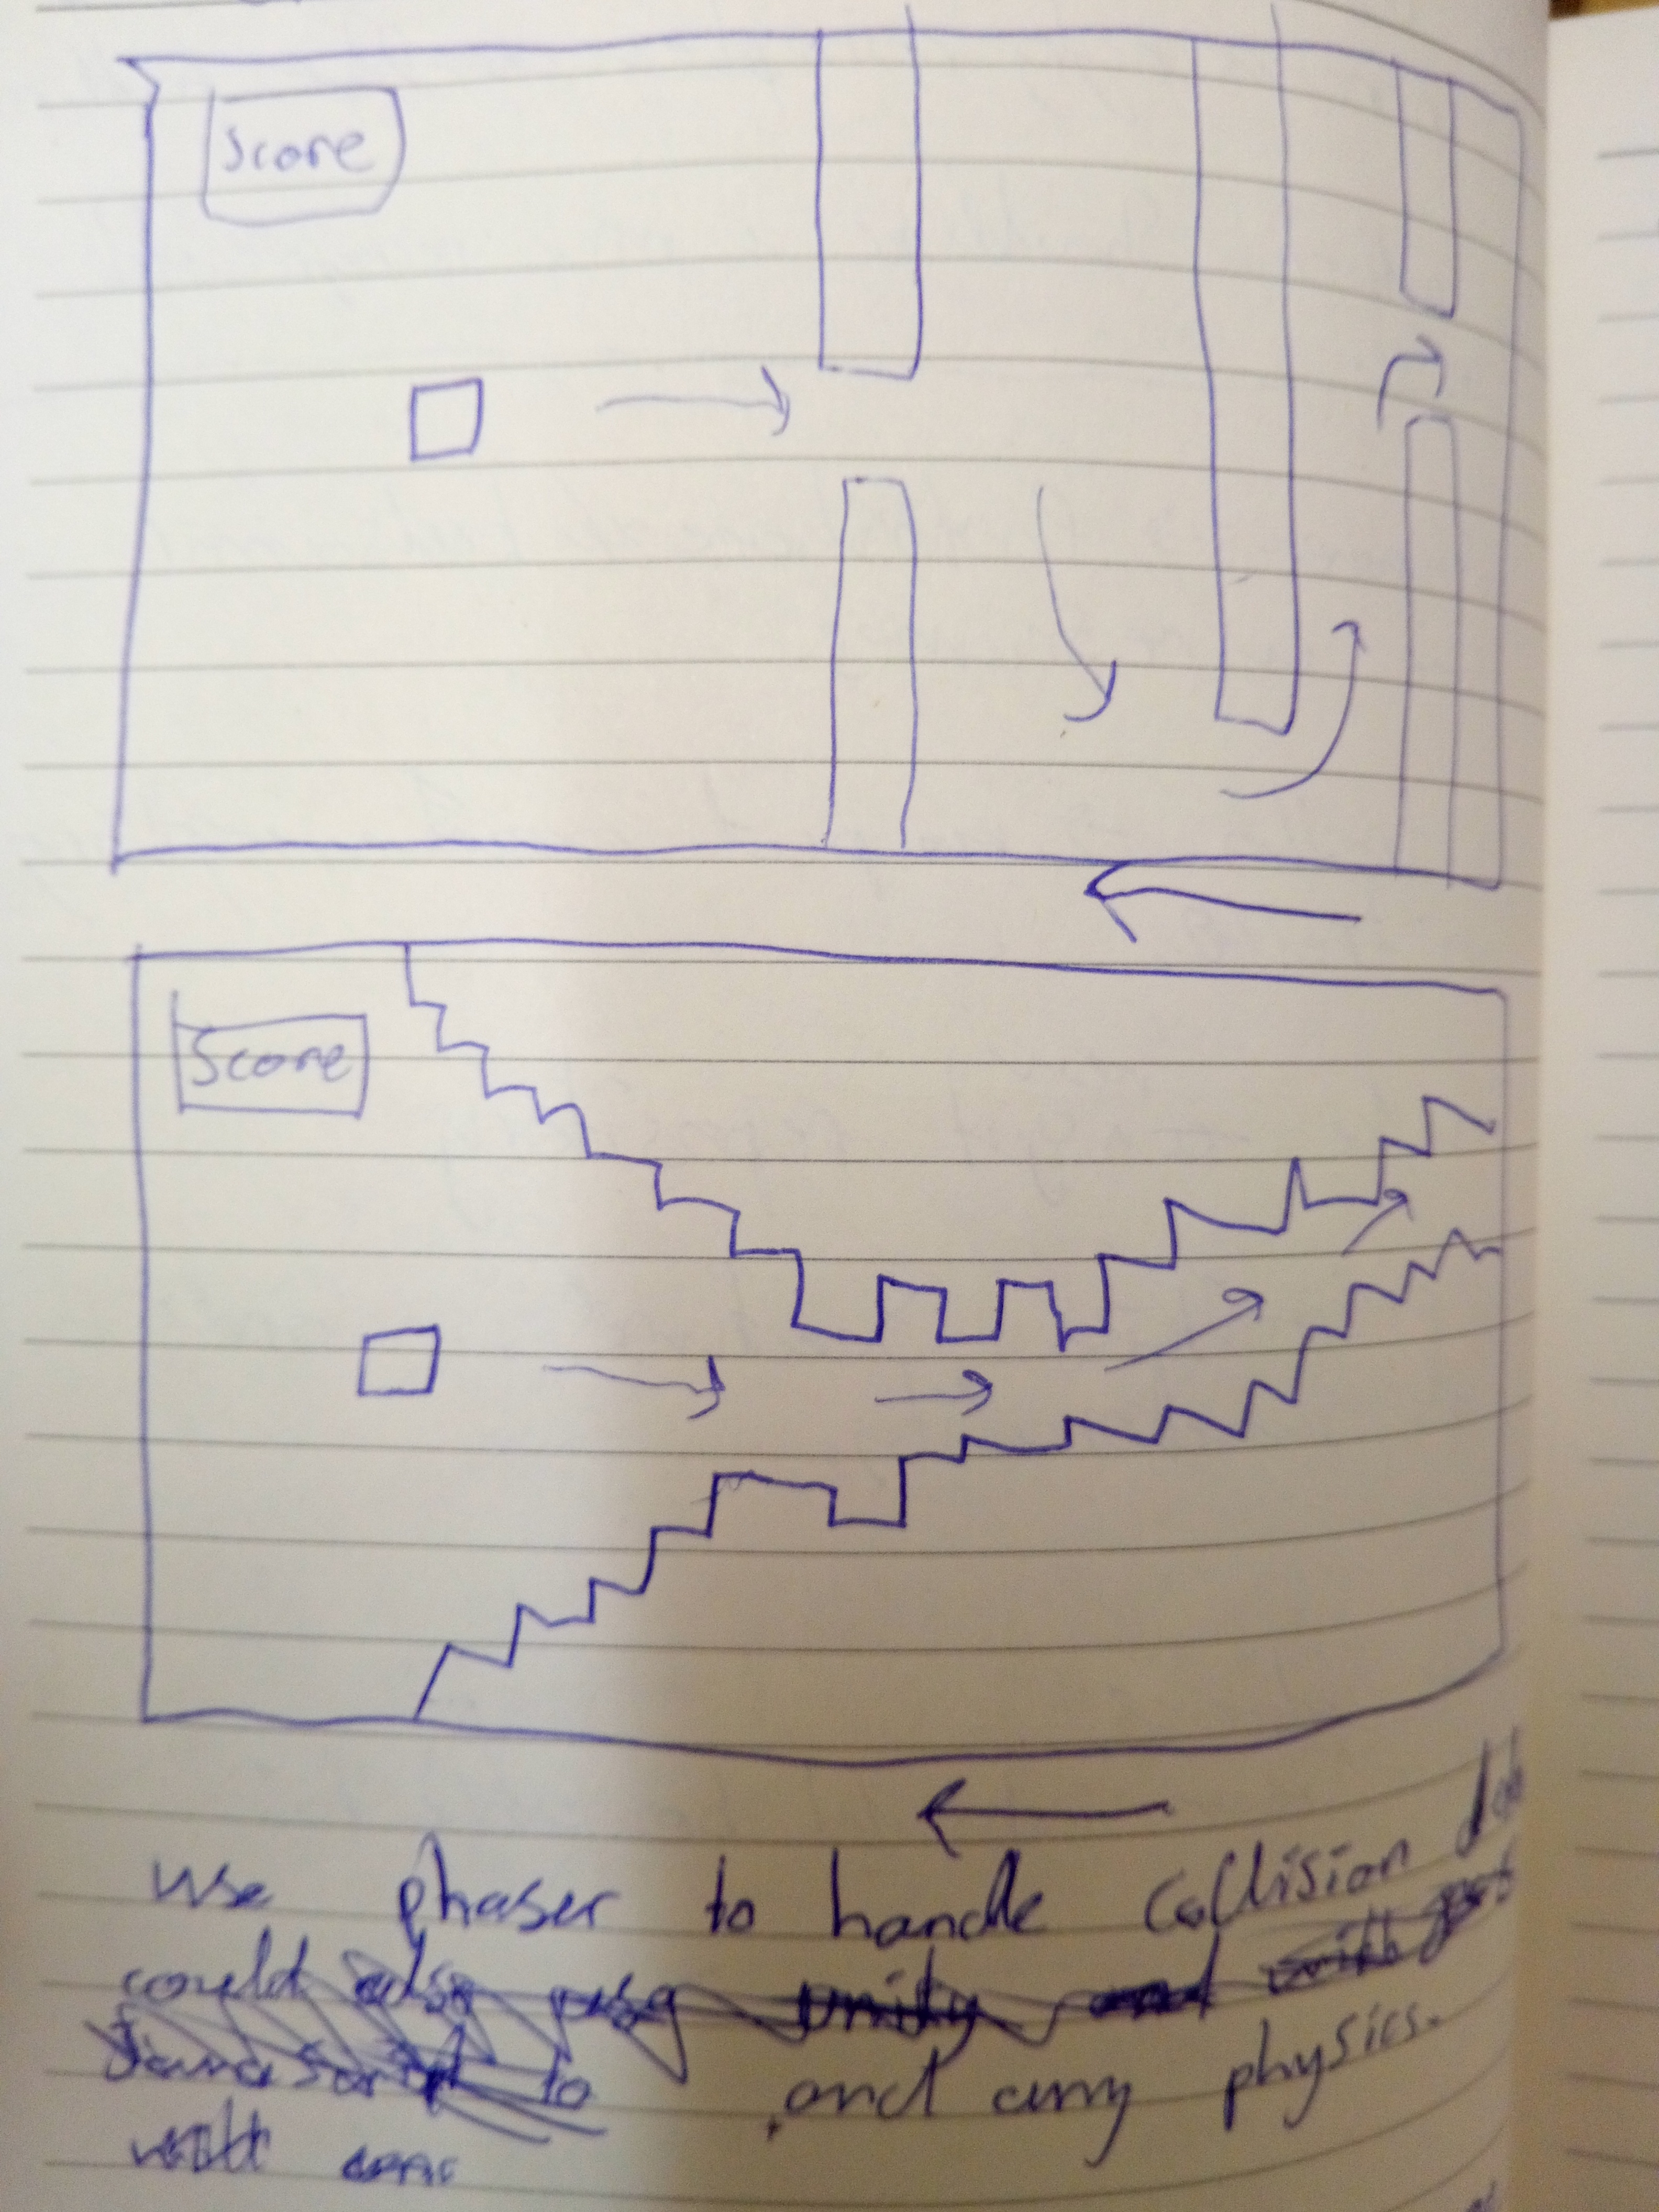 Score
Score
use phaser to handle Collision
could also use unity and with
to and any physics.